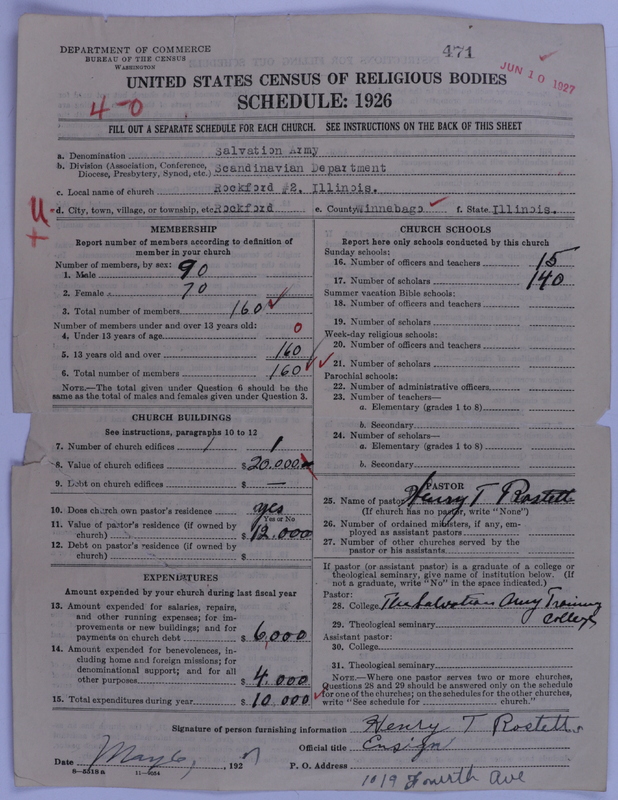 DEPARTMENT OF COMMERCE
BUREAU OF THE CENSUS
WASHINGTON
471
JUN 10 1927
4-0
UNITED STATES CENSUS OF RELIGIOUS BODIES
SCHEDULE: 1926
FILL OUT A SEPARATE SCHEDULE FOR EACH CHURCH. SEE INSTRUCTIONS ON THE BACK OF THIS SHEET
a. Denomination Salvation Army
b. Division (Association, Conference, Diocese, Presbytery, Synod, etc.) Scandinavian Department
c. Local name of church Rockford #2, Illinois.
d. City, town, village, or township, etc. Rockford e. County Winnebago f. State Illinois.
MEMBERSHIP
Report number of members according to definition of
member in your church
Number of members, by sex:
1. Male 90
2. Female 70
3. Total number of members 160
Number of members under and over 13 years old:
4. Under 13 years of age 0
5. 13 years old and over 160
6. Total number of members 160
NOTE.—The total given under Question 6 should be the
same as the total of males and females given under Question 3.
CHURCH BUILDINGS
See instructions, paragraphs 10 to 12
7. Number of church edifices 1
8. Value of church edifices $20.000
9. Debt on church edifices $ —
10. Does church own pastor's residence yes
Yes or No
11. Value of pastor's residence (if owned by
church) $12.000
12. Debt on pastor's residence (if owned by
church) $
EXPENDITURES
Amount expended by your church during last fiscal year
13. Amount expended for salaries, repairs,
and other running expenses; for im-
provements or new buildings; and for
payments on church debt $6,000
14. Amount expended for benevolences, in-
cluding home and foreign missions; for
denominational support; and for all
other purposes $4.000
15. Total expenditures during year $10 000
CHURCH SCHOOLS
Report here only schools conducted by this church
Sunday schools:
16. Number of officers and teachers 15
17. Number of scholars 140
Summer vacation Bible schools:
18. Number of officers and teachers
19. Number of scholars
Week-day religious schools:
20. Number of officers and teachers
21. Number of scholars
Parochial schools:
22. Number of administrative officers
23. Number of teachers—
a. Elementary (grades 1 to 8)
b. Secondary
24. Number of scholars—
a. Elementary (grades 1 to 8)
b. Secondary
PASTOR
25. Name of pastor Henry T Rostett
(If church has no pastor, write "None")
26. Number of ordained ministers, if any, em-
ployed as assistant pastors
27. Number of other churches served by the
pastor or his assistants
If pastor (or assistant pastor) is a graduate of a college or
theological seminary, give name of institution below. (If
not a graduate, write "No" in the space indicated.)
Pastor:
28. College The Salvation Army Training
College
29. Theological seminary
Assistant pastor:
30. College
31. Theological seminary
NOTE.—Where one pastor serves two or more churches,
Questions 28 and 29 should be answered only on the schedule
for one of the churches; on the schedules for the other churches,
write "See schedule for church."
Signature of person furnishing information Henry T Rostett
Official title Ensign
Date May 6, 1927 P. O. Address 1019 Fourth Ave
8-5518 a 11-9054